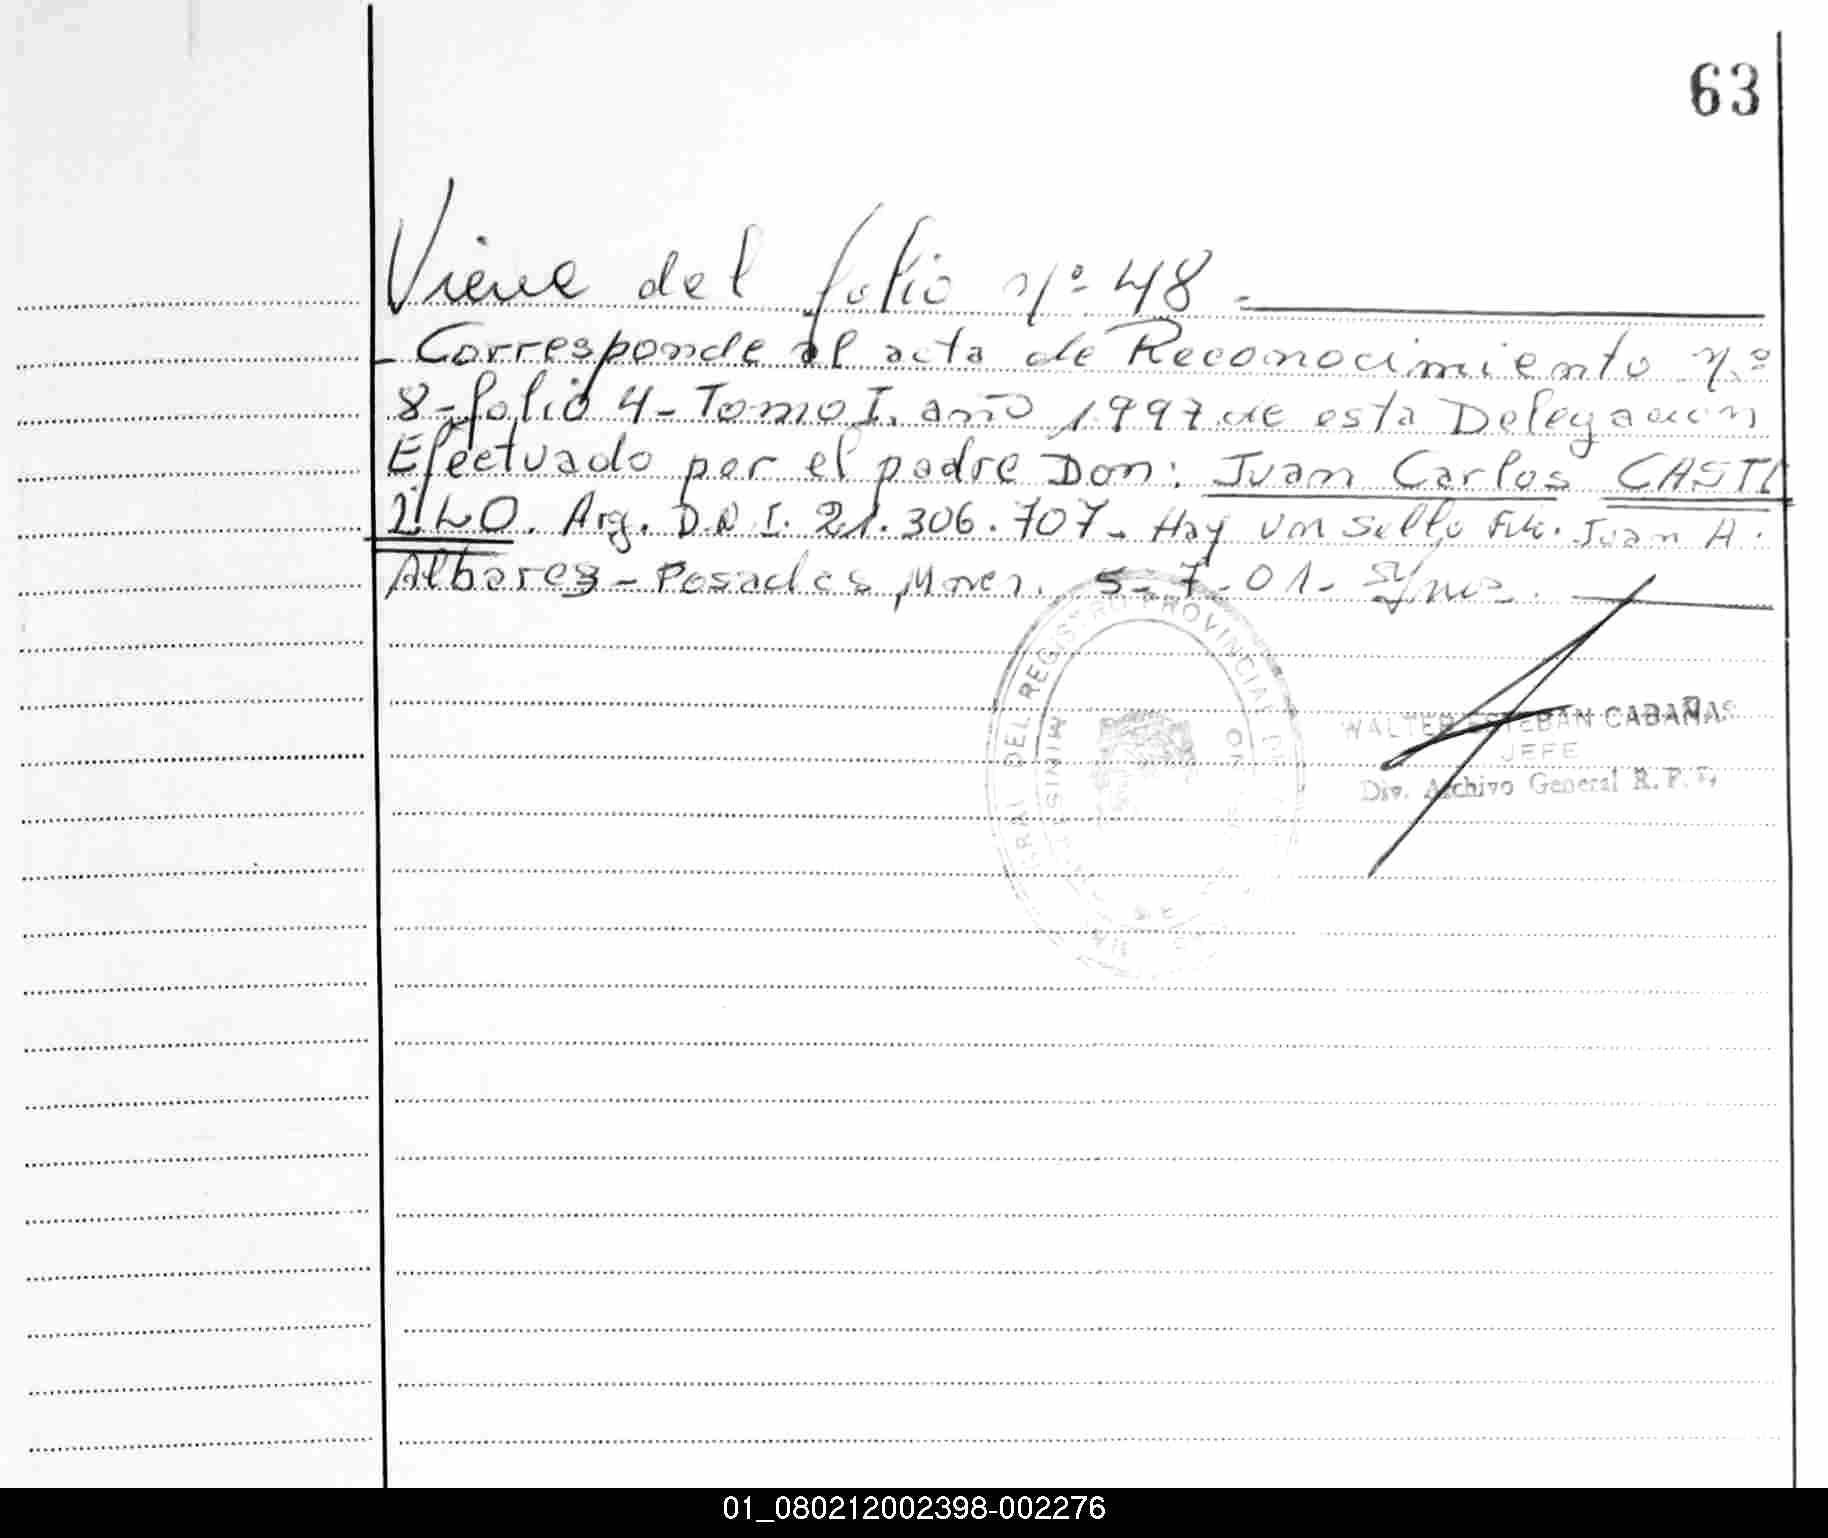 63
Viene del folio Nº 48.
- Corresponde al acta de Reconocimiento Nº
8 - folio 4 - Tomo I. año 1997 de esta Delegación
Efectuado por el padre Don: Juan Carlos CASTI
LLO. Arg. D.N.I. 21.306.707 - Hay un sello Fdo. Juan A.
Albarez - Posadas, Mnes. 5-7-01-
DEL REGISTRO PROVINCIAL
MINIST
WALTER ESTEBAN CABAÑAS
JEFE
Div. Archivo General R. P. P.
01_080212002398-002276